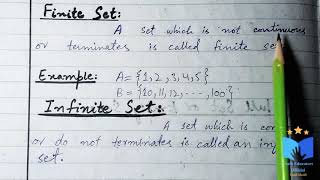 Finite Set:
A set which is not continuous
or terminates is called finite se
Example: A = {1, 2, 3, 4, 5}
B = {10, 11, 12, ..., 100}
Infinite Set:
A set which is con
or do not terminates is called an inf
set.